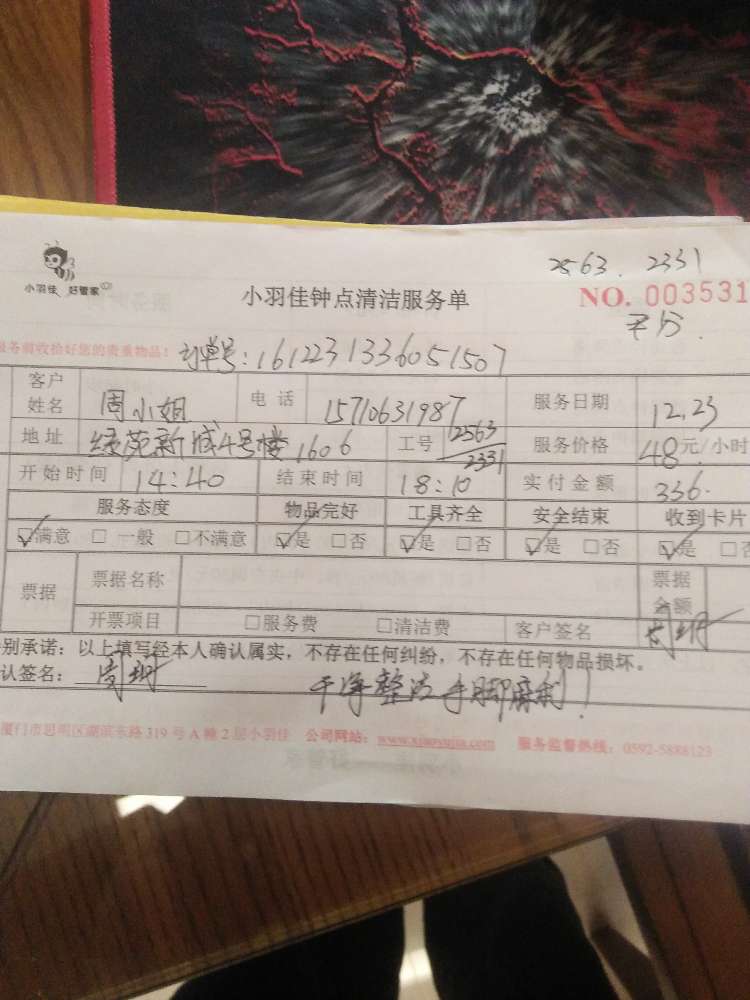 2563. 2331
小羽佳 好管家
小羽佳钟点清洁服务单
NO. 003531
平分.
服务前收拾好您的贵重物品! 订单号:1612231336051507
客户姓名 周小姐 电话 15710631987 服务日期 12.23
地址 绿苑新城4号楼1606 工号 2563 2331 服务价格 48元/小时
开始时间 14:40 结束时间 18:10 实付金额 336.
服务态度 物品完好 工具齐全 安全结束 收到卡片
☑满意 □一般 □不满意 ☑是 □否 ☑是 □否 ☑是 □否 ☑是 □否
票据 票据名称 票据金额
开票项目 □服务费 □清洁费 客户签名
别承诺:以上填写经本人确认属实,不存在任何纠纷,不存在任何物品损坏。
认签名:
干净整洁手脚麻利!
厦门市思明区湖滨东路319号A幢2层小羽佳 公司网站:www.xiaoyujia.com 服务监督热线:0592-5888123